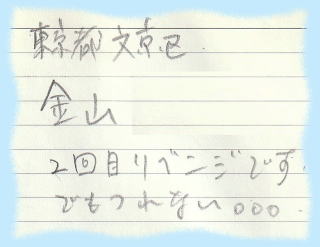 東京都文京区.
金山
2回目リベンジです.
でもつれない。。。.